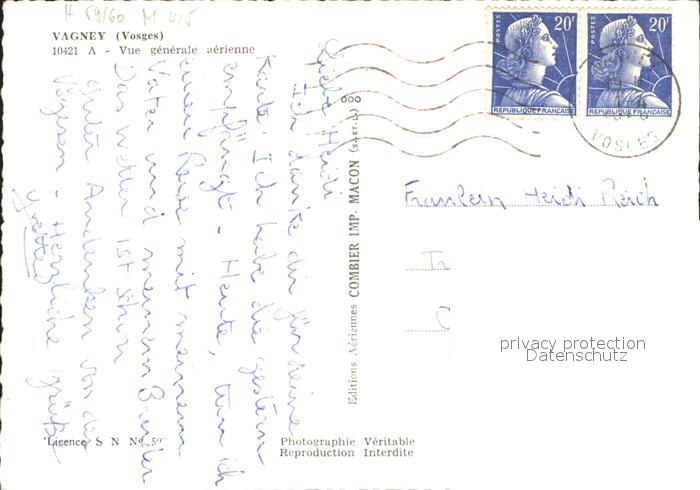 H 59/60 M 4/5
VAGNEY (Vosges)
10421 A - Vue générale aérienne
POSTES 20F
REPUBLIQUE FRANCAISE
POSTES 20F
REPUBLIQUE FRANCAISE
VOSGES
Liebe Heidi
Ich danke dir für deine
Karte. Ich habe die gestern
empfängt - Heute, tun ich
einen Reise mit meinem
Vater und meinem Bruder
Das Wetter ist schön
guten Andenken von den
Vogesen - Herzliche grüße
Yvette
Editions Aériennes COMBIER IMP. MACON (S.-ET-L.)
Franlein Heidi Reich
privacy protection
Datenschutz
Licence S N No 59
Photographie Véritable
Reproduction Interdite